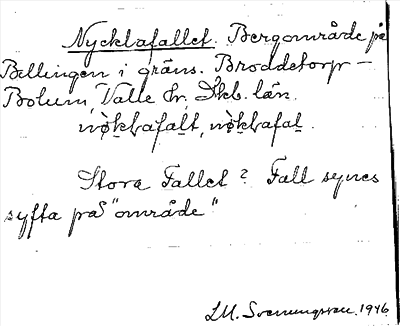 Nycklafallet. Bergområde på
Billingen i gräns. Broddetorp –
Bolum, Valle hr, Skb. län.
Stora Fallet? Fall synes
syfta på "område"
LM. Svenungsson. 1946